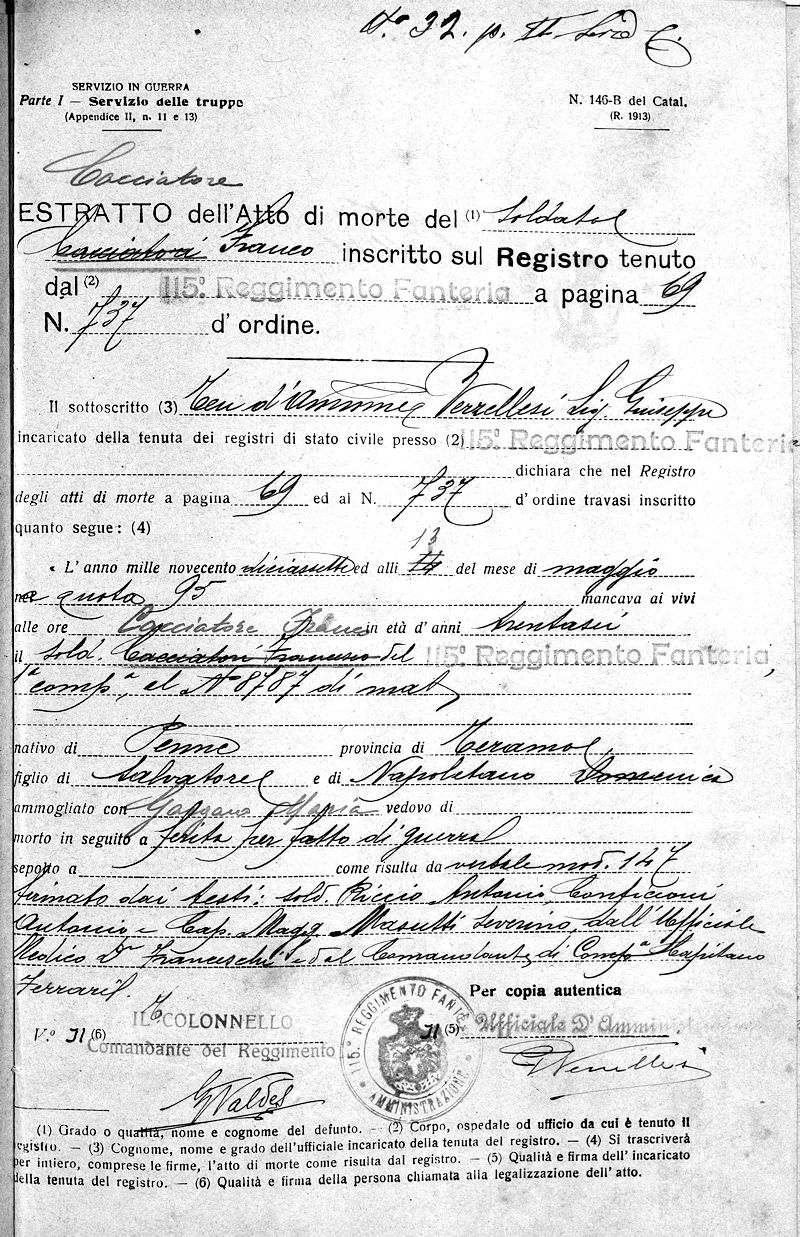 N.º 32. p. II Serie C.
SERVIZIO IN GUERRA
Parte I — Servizio delle truppe
(Appendice II, n. 11 e 13)
N. 146-B del Catal.
(R. 1913)
Cacciatore
ESTRATTO dell'Atto di morte del (1) Soldato
Cacciatori Franco inscritto sul Registro tenuto
dal (2) 115º Reggimento Fanteria a pagina 69
N. 737 d' ordine.
Il sottoscritto (3) Ten d'Ammne Verzellesi Sig. Giuseppe
incaricato della tenuta dei registri di stato civile presso (2) 115º Reggimento Fanteria
dichiara che nel Registro
degli atti di morte a pagina 69 ed al N. 737 d'ordine travasi inscritto
quanto segue: (4)
13
« L' anno mille novecento diciassette ed alli 14 del mese di maggio
a quota 95 mancava ai vivi
alle ore Cacciatore Franco in età d' anni trentasei
il sold. Cacciatori Francesco del 115º Reggimento Fanteria,
1ª compª, el Nº 8787 di mat
nativo di Penne provincia di Teramo
figlio di Salvatore e di Napoletano Domenica
ammogliato con Maria vedovo di
morto in seguito a ferita per fatto di guerra
sepolto a come risulta da verbale mod. 147
firmato dai testi: sold. Riccio Antonio,
Antonio e Cap. Magg. Masutti Severino, dall'Ufficiale
Medico Dr Franceschi e dal Comandante di Compª Capitano
Ferrari.
Per copia autentica
V.º Il (6) IL COLONNELLO
Comandante del Reggimento
Il (5) Ufficiale D'Amministrazione
115º REGGIMENTO FANTERIA
AMMINISTRAZIONE
G Valdes
G Verzellesi
(1) Grado o qualità, nome e cognome del defunto. — (2) Corpo, ospedale od ufficio da cui è tenuto il
registro. — (3) Cognome, nome e grado dell'ufficiale incaricato della tenuta del registro. — (4) Si trascriverà
per intiero, comprese le firme, l'atto di morte come risulta dal registro. — (5) Qualità e firma dell' incaricato
della tenuta del registro. — (6) Qualità e firma della persona chiamata alla legalizzazione dell' atto.